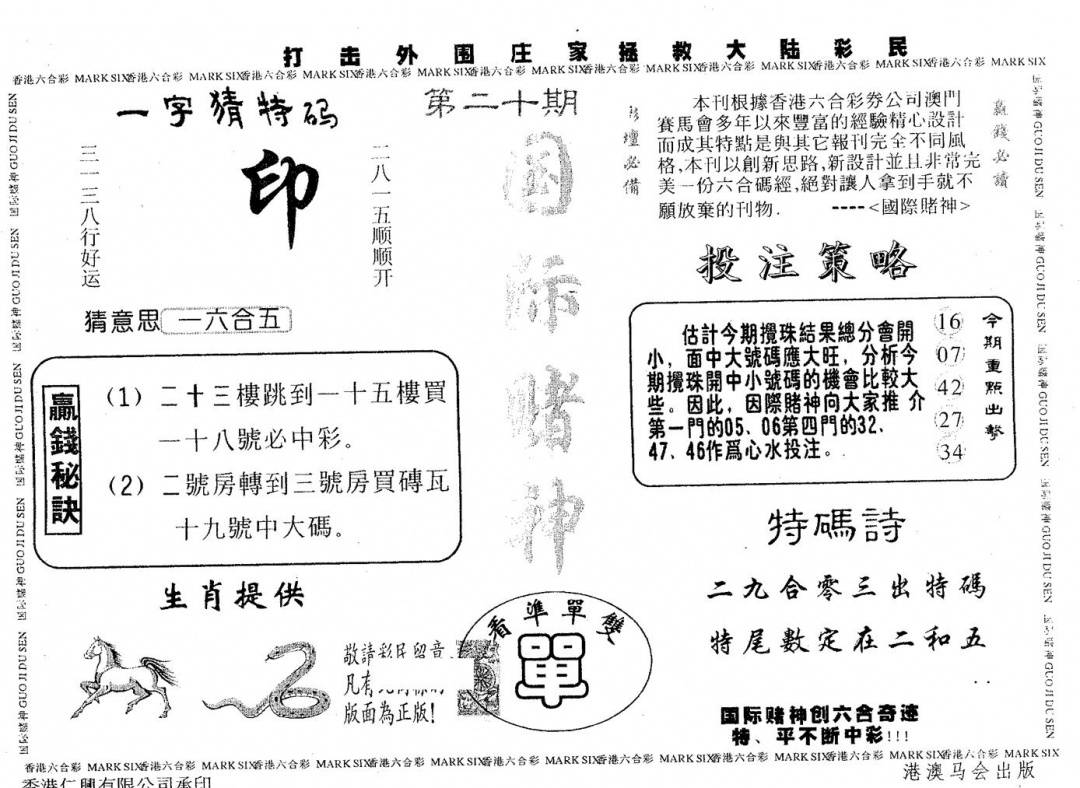 打击外围庄家拯救大陆彩民
香港六合彩 MARK SIX香港六合彩 MARK SIX香港六合彩 MARK SIX香港六合彩 MARK SIX香港六合彩 MARK SIX香港六合彩 MARK SIX香港六合彩 MARK SIX香港六合彩 MARK SIX香港六合彩 MARK SIX
国际赌神 GUO JI DU SEN 国际赌神 GUO JI DU SEN 国际赌神 GUO JI DU SEN 国际赌神 GUO JI DU SEN 国际赌神 GUO JI DU SEN
一字猜特码
三一三八行好运
印
二八一五顺顺开
猜意思 一六合五
赢錢秘訣
(1) 二十三樓跳到一十五樓買
一十八號必中彩。
(2) 二號房轉到三號房買磚瓦
十九號中大碼。
生肖提供
敬請彩民留意
版面為正版!
第二十期
国际赌神
看準單雙
單
彩壇必備
本刊根據香港六合彩券公司澳門
賽馬會多年以來豐富的經驗精心設計
而成其特點是與其它報刊完全不同風
格,本刊以創新思路,新設計並且非常完
美一份六合碼經,絕對讓人拿到手就不
願放棄的刊物. ----<國際賭神>
贏錢必讀
投注策略
估計今期攪珠結果總分會開
小，面中大號碼應大旺，分析今
期攪珠開中小號碼的機會比較大
些。因此，因際賭神向大家推 介
第一門的05、06第四門的32、
47、46作爲心水投注。
16
07
42
27
34
今期重點出擊
特碼詩
二九合零三出特碼
特尾數定在二和五
国际赌神创六合奇迹
特、平不断中彩!!!
国际赌神 GUO JI DU SEN 国际赌神 GUO JI DU SEN 国际赌神 GUO JI DU SEN 国际赌神 GUO JI DU SEN 国际赌神 GUO JI DU SEN
香港六合彩 MARK SIX香港六合彩 MARK SIX香港六合彩 MARK SIX香港六合彩 MARK SIX香港六合彩 MARK SIX香港六合彩 MARK SIX香港六合彩 MARK SIX香港六合彩 MARK SIX香港六合彩 MARK SIX
香港仁興有限公司承印
港澳马会出版